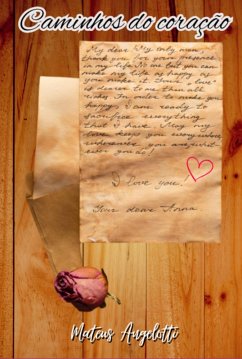 Caminhos do coração
My dear! My only man,
thank you for your presence
in my life. No one but you can
make my life as happy as
you make it. Your love
is dearer to me than all
riches. In order to make you
happy, I am ready to
sacrifice everything
that I have. May my
love keep you everywhere,
wherever you are, what-
ever you do!
I love you.
Your dear Anna
Mateus Angelotti